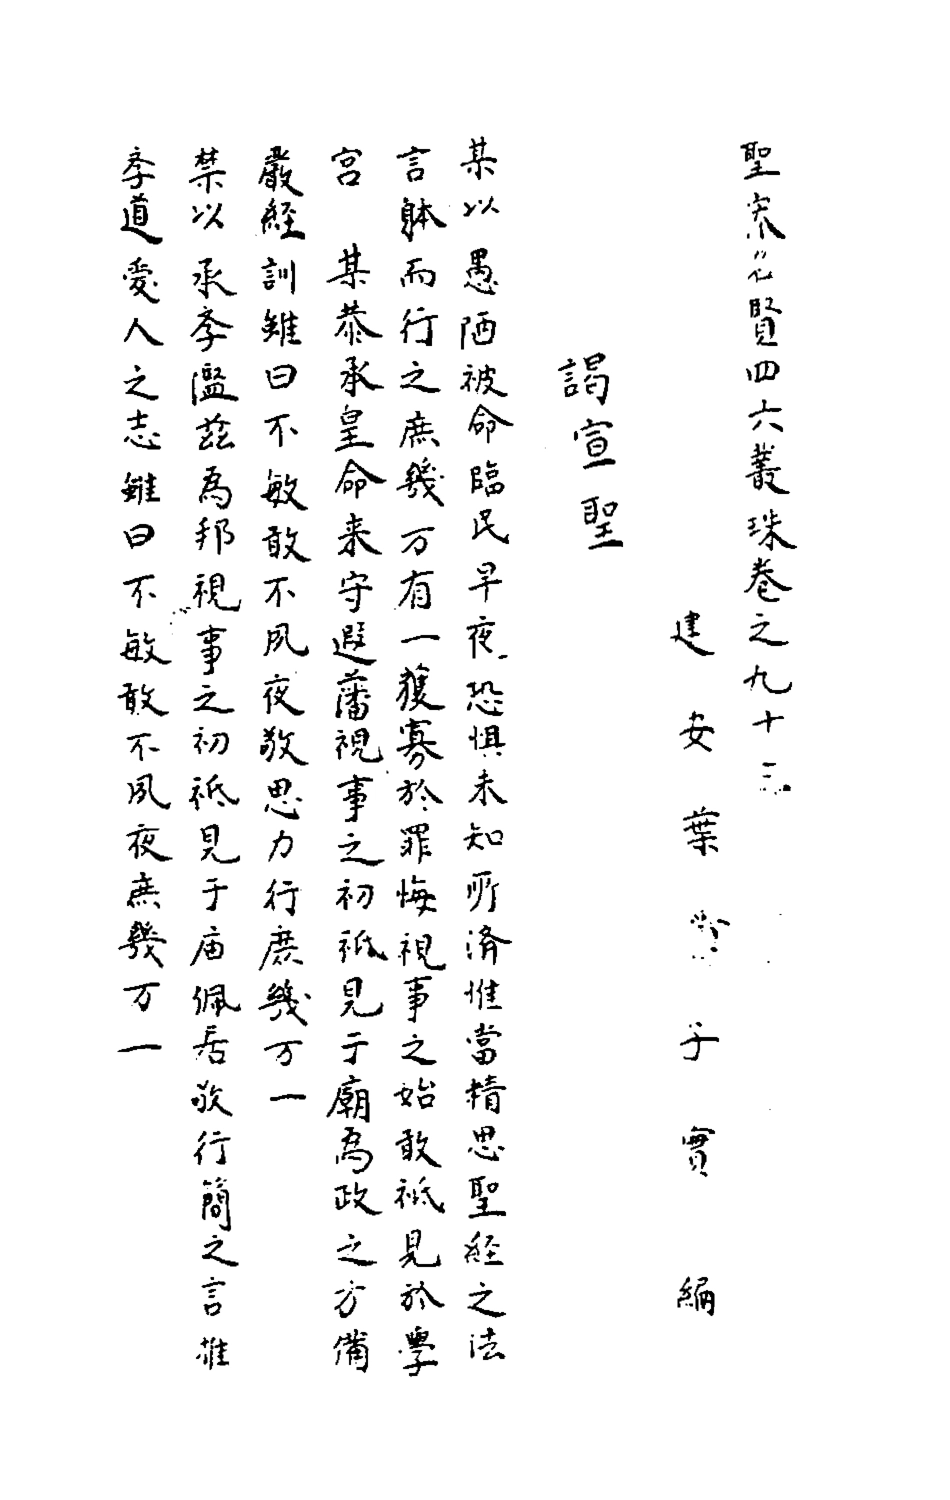 聖宋賢四六叢珠卷之九十三
建安葉子實編
謁宣聖
某以愚陋被命臨民早夜恐惧未知所済惟當精思聖経之法
言躰而行之庶幾万有一獲寡於罪悔視事之始敢祗見於學
宮　某恭承皇命来守遐藩視事之初祗見于廟為政之方備
嚴経訓雖曰不敏敢不夙夜敬思力行庶幾万一
禁以承孝濫茲為邦視事之初祗見于庙佩居敬行簡之言推
孝道愛人之志雖曰不敏敢不夙夜庶幾万一